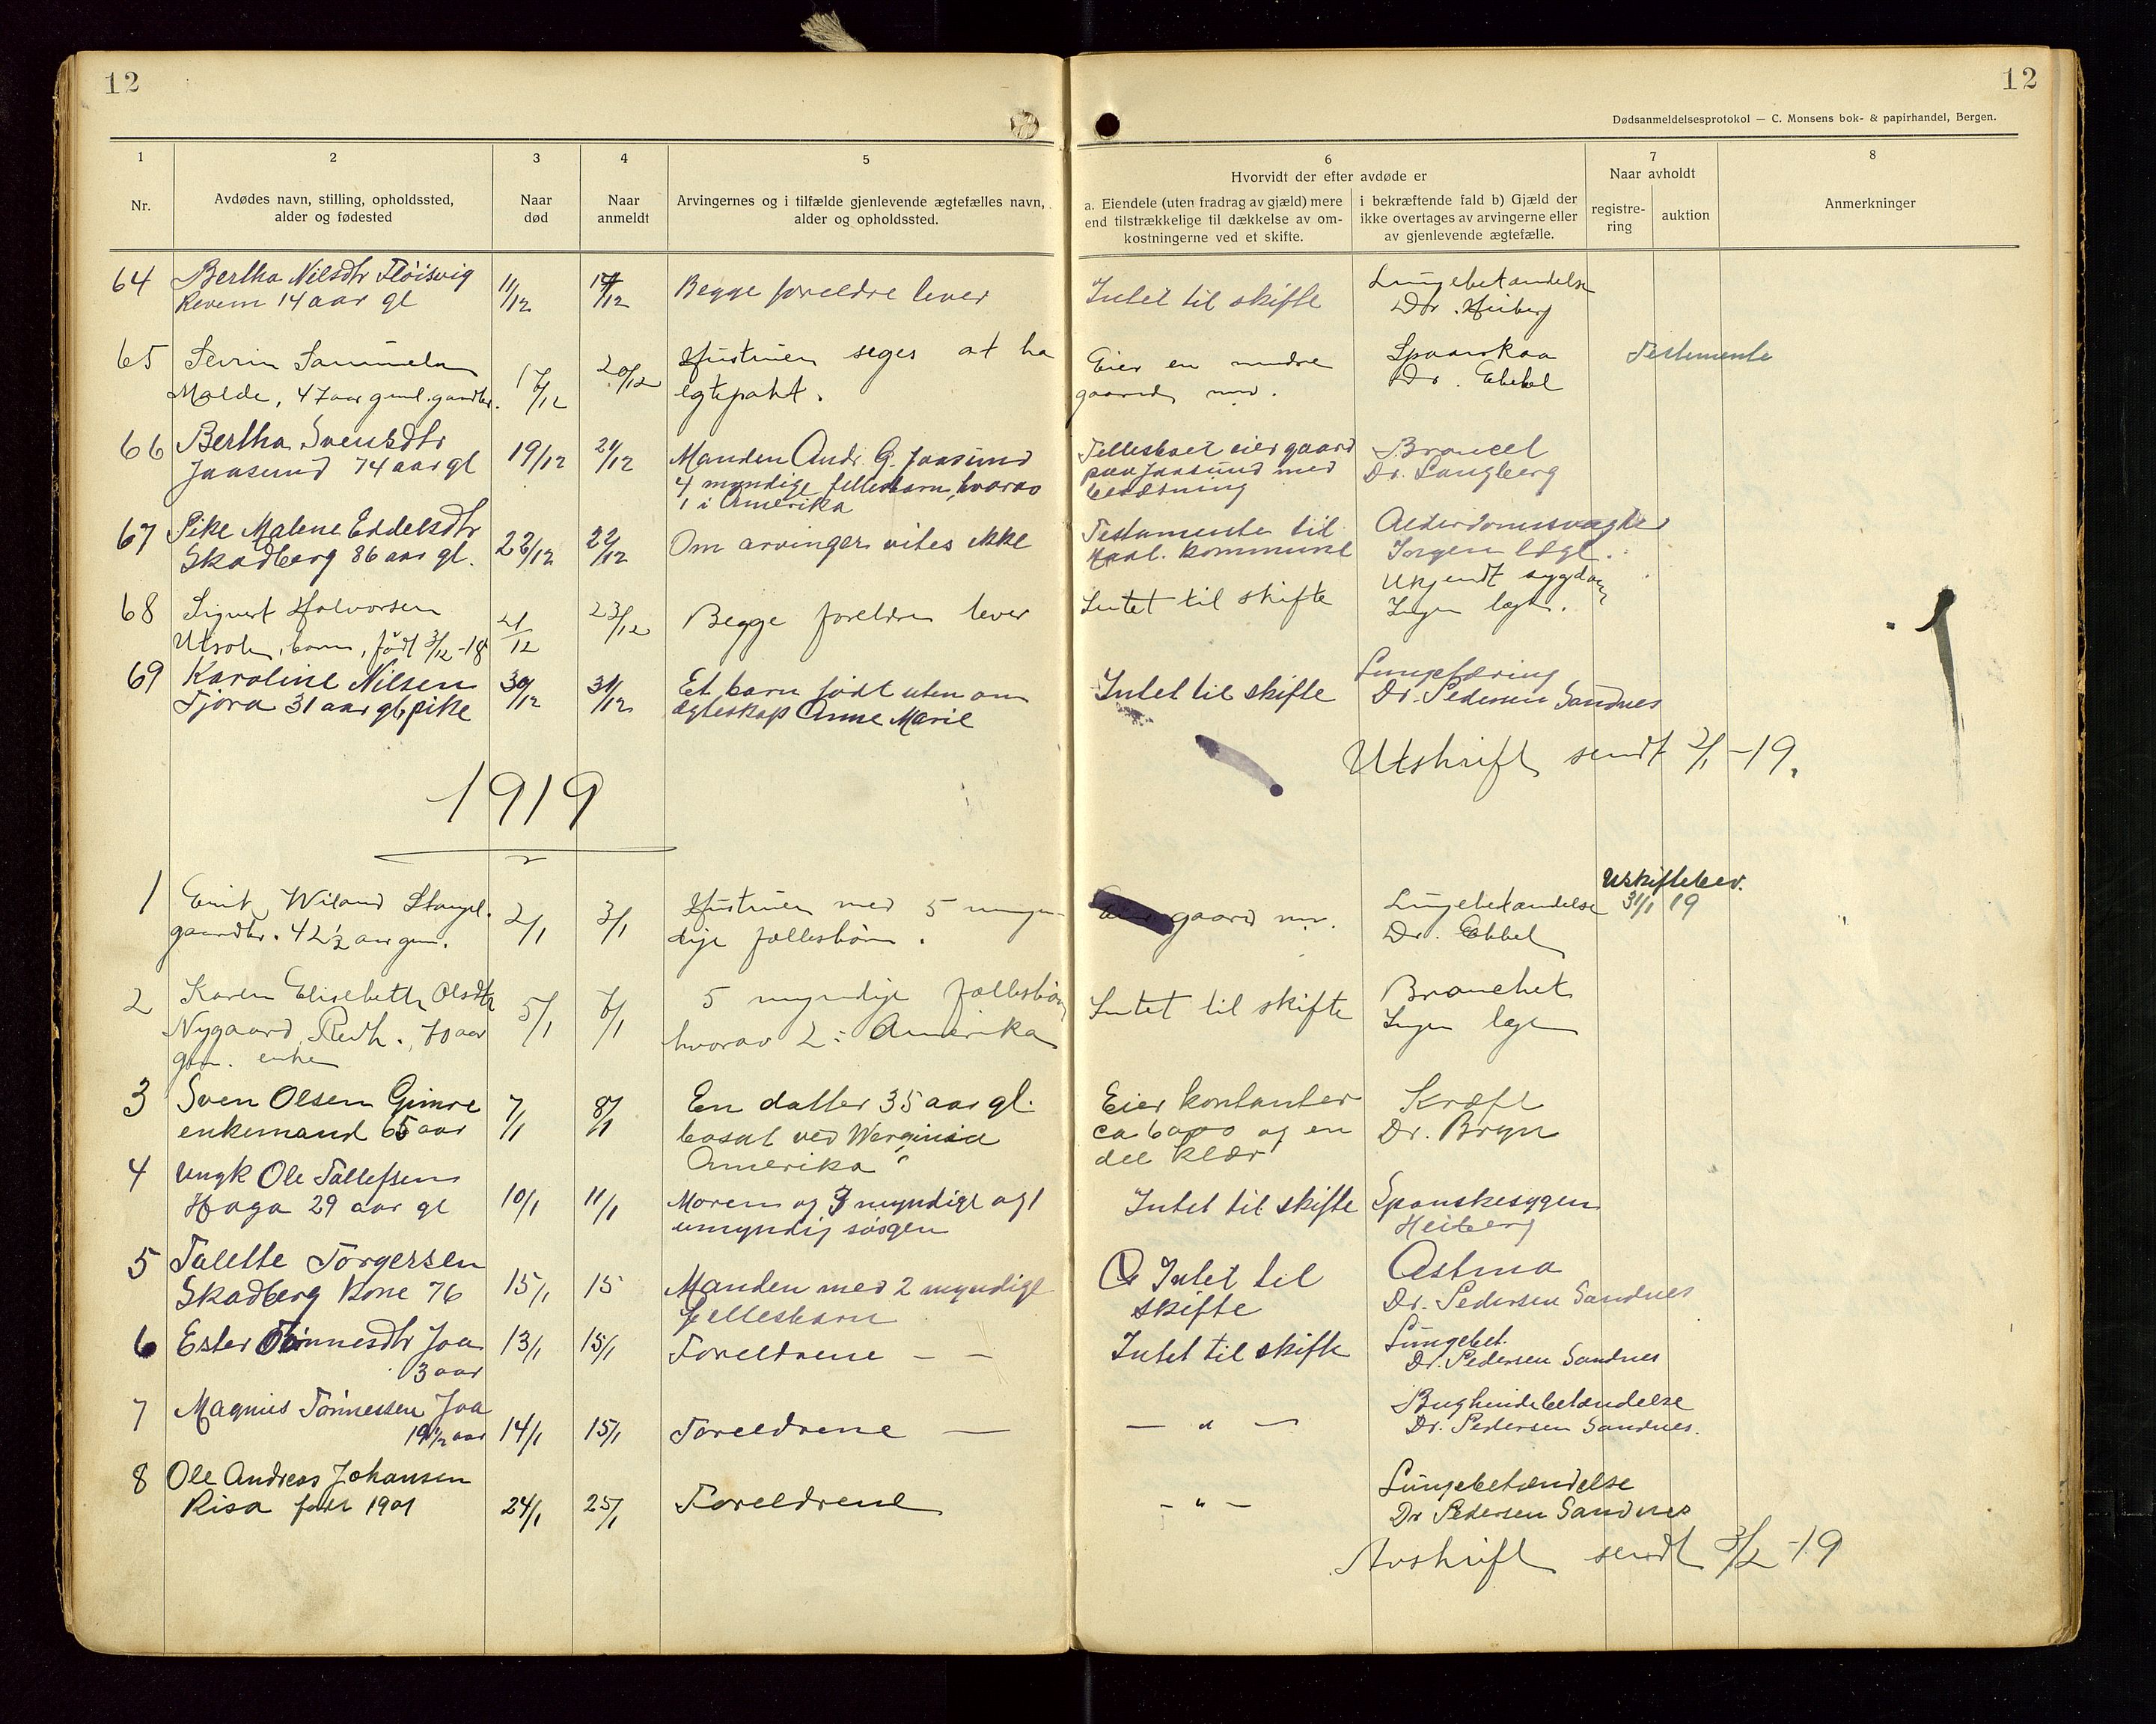 12
12
Dødsanmeldelsesprotokol — C. Monsens bok- & papirhandel, Bergen.
1
2
3
4
5
6
7
8
Nr.
Avdødes navn, stilling, opholdssted,
alder og fødested
Naar
død
Naar
anmeldt
Arvingernes og i tilfælde gjenlevende ægtefælles navn,
alder og opholdssted.
Hvorvidt der efter avdøde er
a. Eiendele (uten fradrag av gjæld) mere
end tilstrækkelige til dækkelse av om-
kostningerne ved et skifte.
i bekræftende fald b) Gjæld der
ikke overtages av arvingerne eller
av gjenlevende ægtefælle.
Naar avholdt
registre-
ring
auktion
Anmerkninger
64 Bertha Nilsdtr Fløisvig 11/12 Begge foreldre lever Intet til skifte Lungebetændelse
Revem 14 aar gl Dr. Heiberg
65 Sevrin Samuelsen 17/12 20/12 Hustruen siges at ha Eier en mindre Dr. Ebbel Testamente
Malde, 47 aar gml. gaardbr. egtepakt. gaard
66 Bertha Svensdtr 19/12 21/12 Manden Andr. G. Jaasund Felleshoet eier gaard
Jaasund 74 aar gl 4 myndige fellesbarn, hvorav paa Jaasund med Dr. Langberg
1 i Amerika besætning
67 Pike Malene Endelsdtr 22/12 22/12 Om arvinger vites ikke Testamente til Alderdomssvaghet
Skadberg 86 aar gl. Haal. kommune Ingen læge.
68 Sigvert Halvorsen 21/12 23/12 Begge foreldre lever Intet til skifte Ukjendt sygdom
Utsola, barn, født 3/12-18 Ingen læge.
69 Karoline Nilsen 30/12 31/12 Et barn født uten om Intet til skifte Lungetæring
Tjora 31 aar gl, pike ægteskap Anne Marie Dr. Pedersen Sandnes
Utskrift sendt 2/1-19.
1919
1 Wiland Stangel. 2/1 3/1 Hustruen med 5 umyn- gaard Lungebetændelse Uskiftebev.
gaardbr. 42 1/2 aar gm. dige fællesbørn. Dr. Ebbel 31/1 19
2 Karen Elisebeth Olsdtr 5/1 7/1 5 myndige fællesbørn Intet til skifte Bronchet
Nygaard, 70 aar hvorav 2 i Amerika Ingen læge
gm. enke
3 Sven Olsen Gimre 7/1 8/1 En datter 35 aar gl. Eier kontanter Kræft
enkemand 65 aar bosat ved Werginia ca 6000 og en Dr. Bryn
Amerika del klær
4 Ungk Ole Tallefsen 10/1 11/1 Moren og 3 myndige og 1 Intet til skifte Spanskesygen
Haga 29 aar gl umyndig søsgen Heiberg
5 Talette Torgersen 15/1 15 Manden med 2 myndige Intet til Astma
Skadberg kone 76 fellesbarn skifte Dr. Pedersen Sandnes
6 Ester Tønnesdtr Joa 13/1 15/1 Foreldrene — — Intet til skifte Lungebet.
3 aar Dr. Pedersen Sandnes
7 Magnus Tønnessen Joa 14/1 15/1 Foreldrene — — " — Bughindebetændelse
19 1/2 aar Dr. Pedersen Sandnes.
8 Ole Andreas Johansen 24/1 25/1 Foreldrene — " — Lungebetændelse
Risa født 1901 Dr Pedersen Sandnes
Avskrift sendt 3/2-19